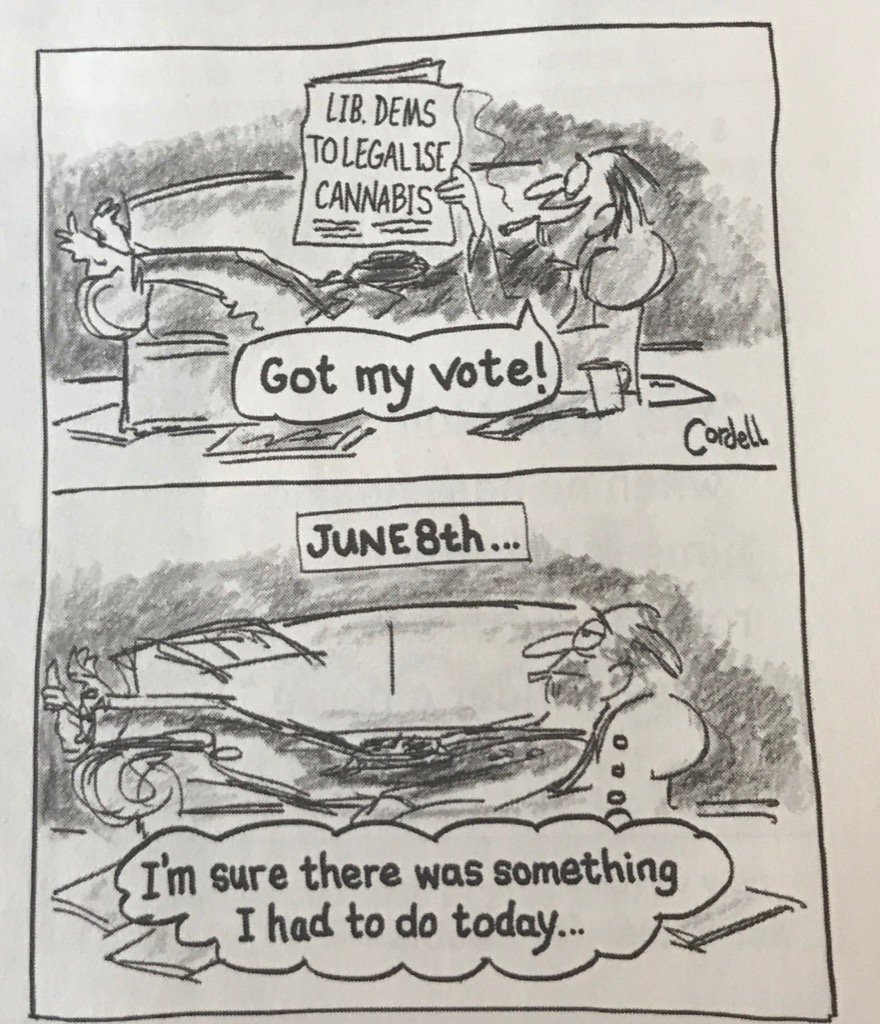 LIB. DEMS
TO LEGALISE
CANNABIS
Got my vote!
Cordell
JUNE 8th...
I'm sure there was something
I had to do today...